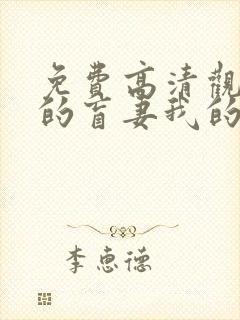 免费高清觀
的盲妻我的
李惠德